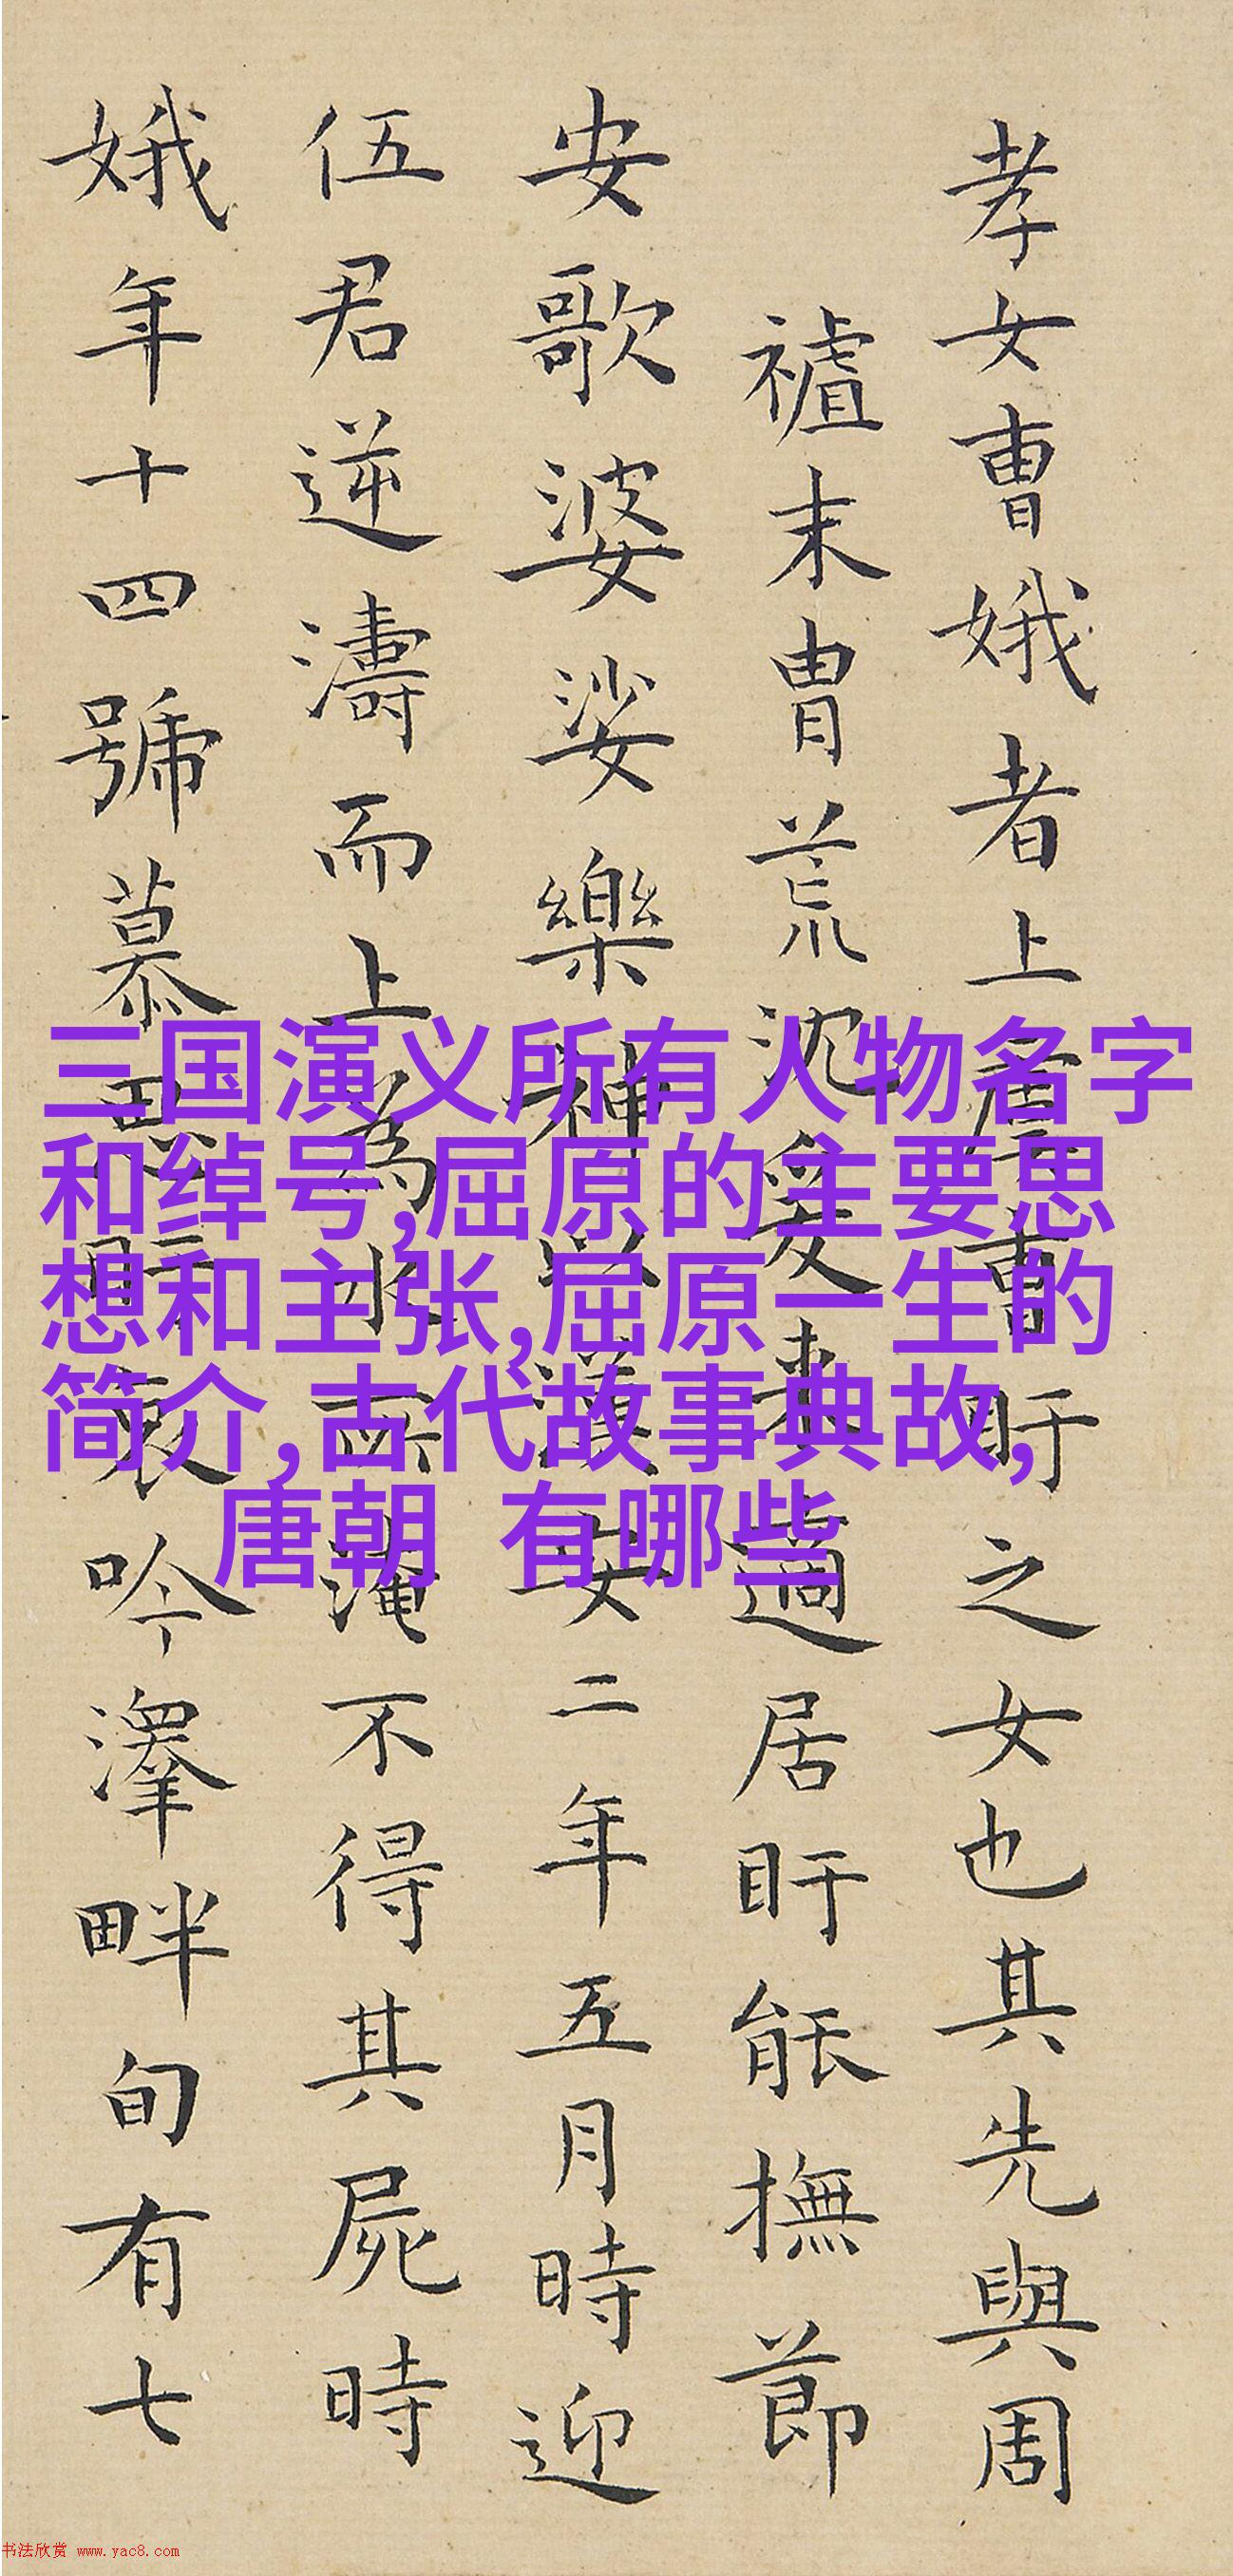 孝女曹娥者上虞曹盱之女也其先與周
禇末胄荒沈爰来適居盱能撫節
安歌婆娑樂神以漢安二年五月時迎
伍君逆濤而上為水所淹不得其屍時
娥年十四號慕思盱哀吟澤畔旬有七
三国演义所有人物名字
和绰号,屈原的主要思
想和主张,屈原一生的
简介,古代故事典故,
唐朝 有哪些
书法欣赏 www.yac8.com